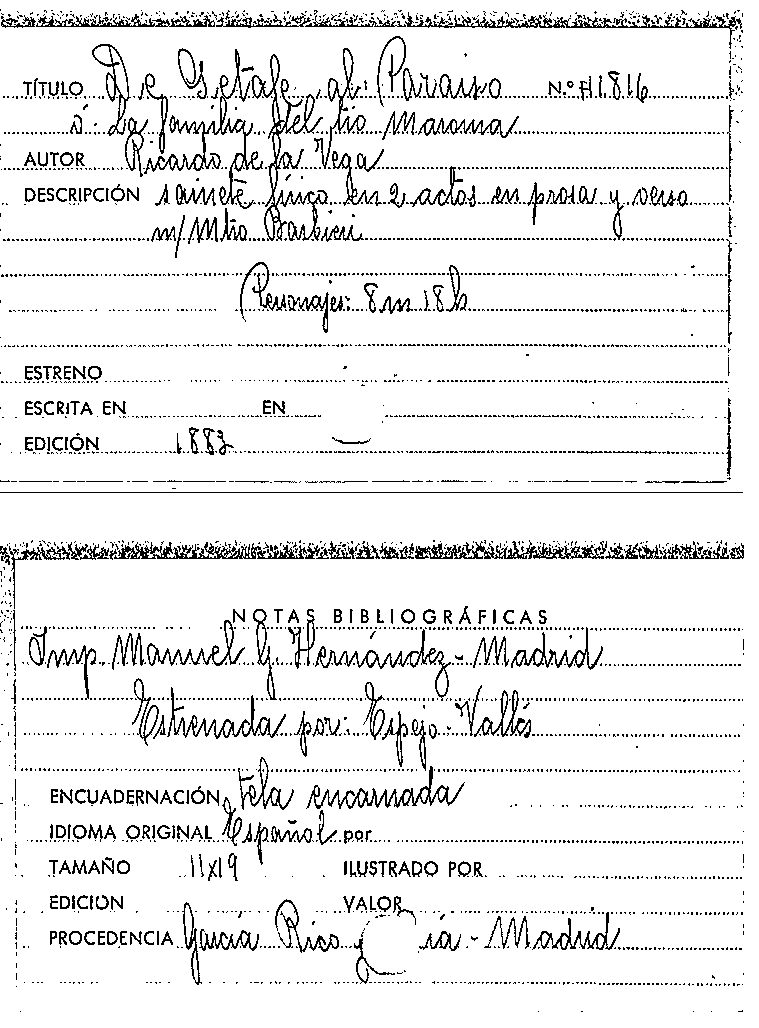 TÍTULO De Getafe al Paraiso N.º 11816
ó La familia del tio Maroma
AUTOR Ricardo de la Vega
DESCRIPCIÓN sainete lírico en 2 actos en prosa y verso
m/ Mtro Barbieri
Personajes: 8m 18h
ESTRENO
ESCRITA EN EN
EDICIÓN 1883
NOTAS BIBLIOGRÁFICAS
Imp. Manuel G. Hernández - Madrid
Estrenada por: Espejo - Vallés
ENCUADERNACIÓN tela encarnada
IDIOMA ORIGINAL Español por
TAMAÑO 11x19 ILUSTRADO POR
EDICIÓN VALOR
PROCEDENCIA García Rico y ía - Madrid